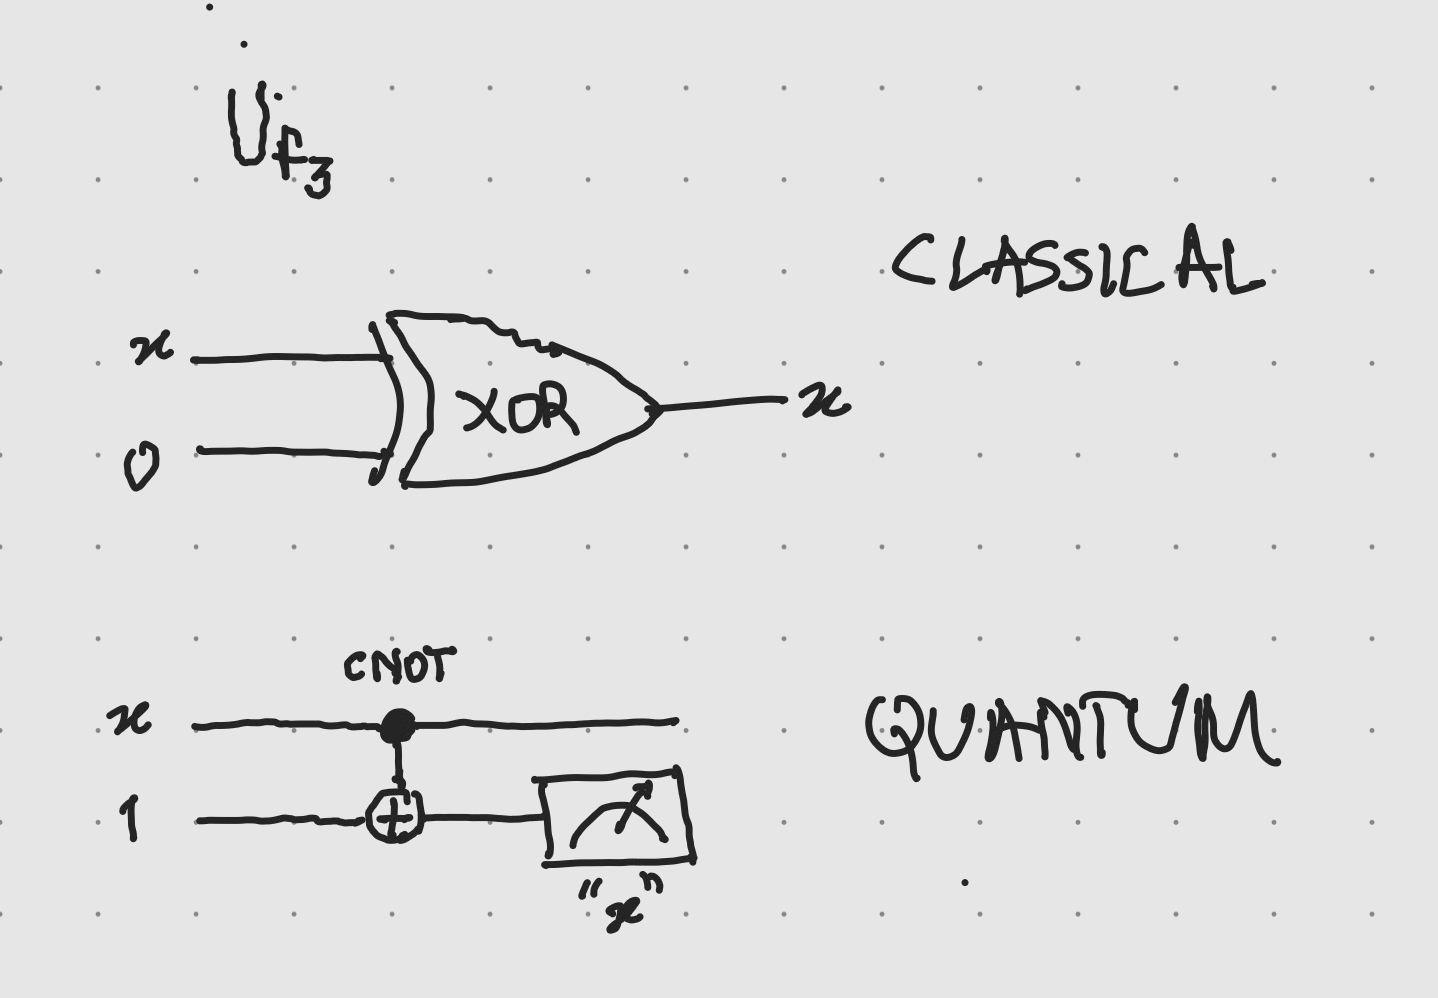 Uf3
CLASSICAL
x
XOR
x
0
CNOT
x
QUANTUM
1
"x"